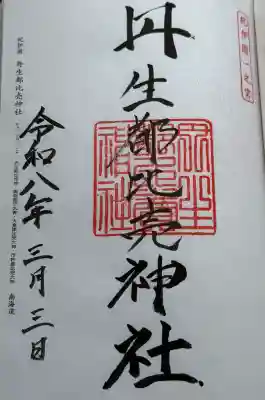 紀伊國一之宮
丹生都比売神社
令和八年三月三日
紀伊国 丹生都比売神社
南海道